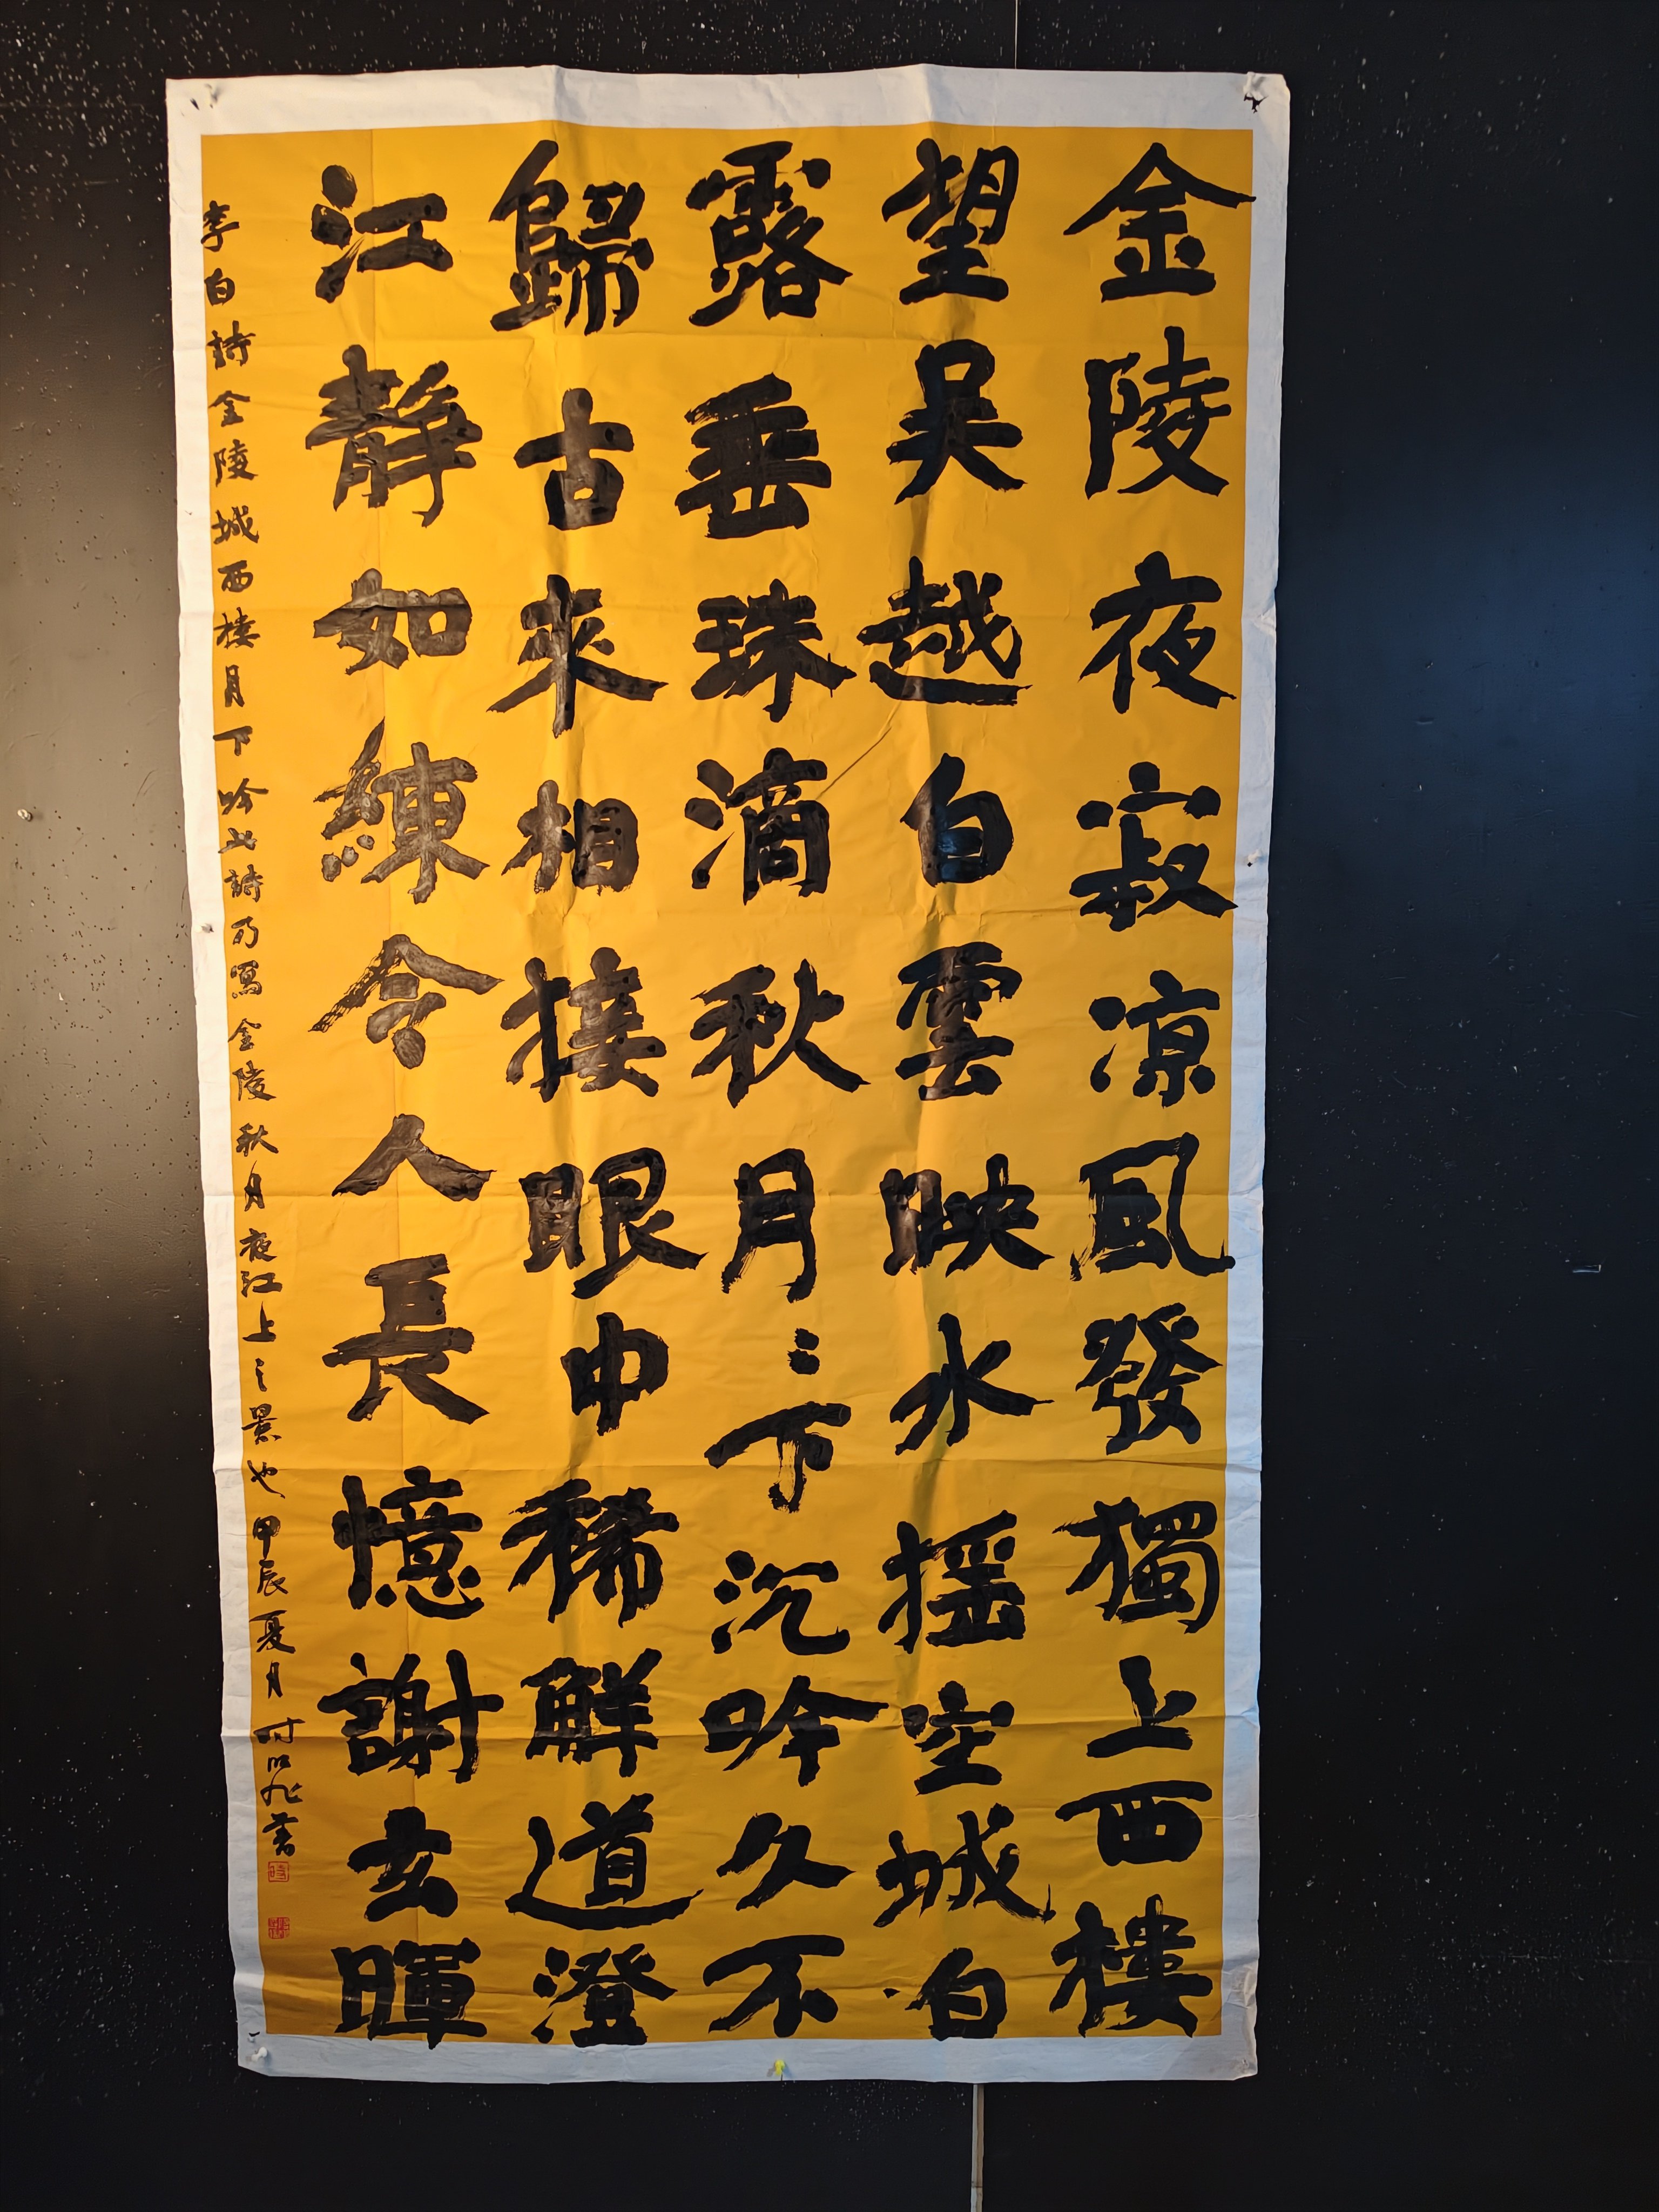 金陵夜寂凉風發獨上西樓
望吴越白雲映水揺空城白
露垂珠滴秋月月下沉吟久不
歸古來相接眼中稀解道澄
江静如練令人長憶謝玄暉
李白詩金陵城西楼月下吟此詩乃寫金陵秋月夜江上之景也甲辰夏月
書